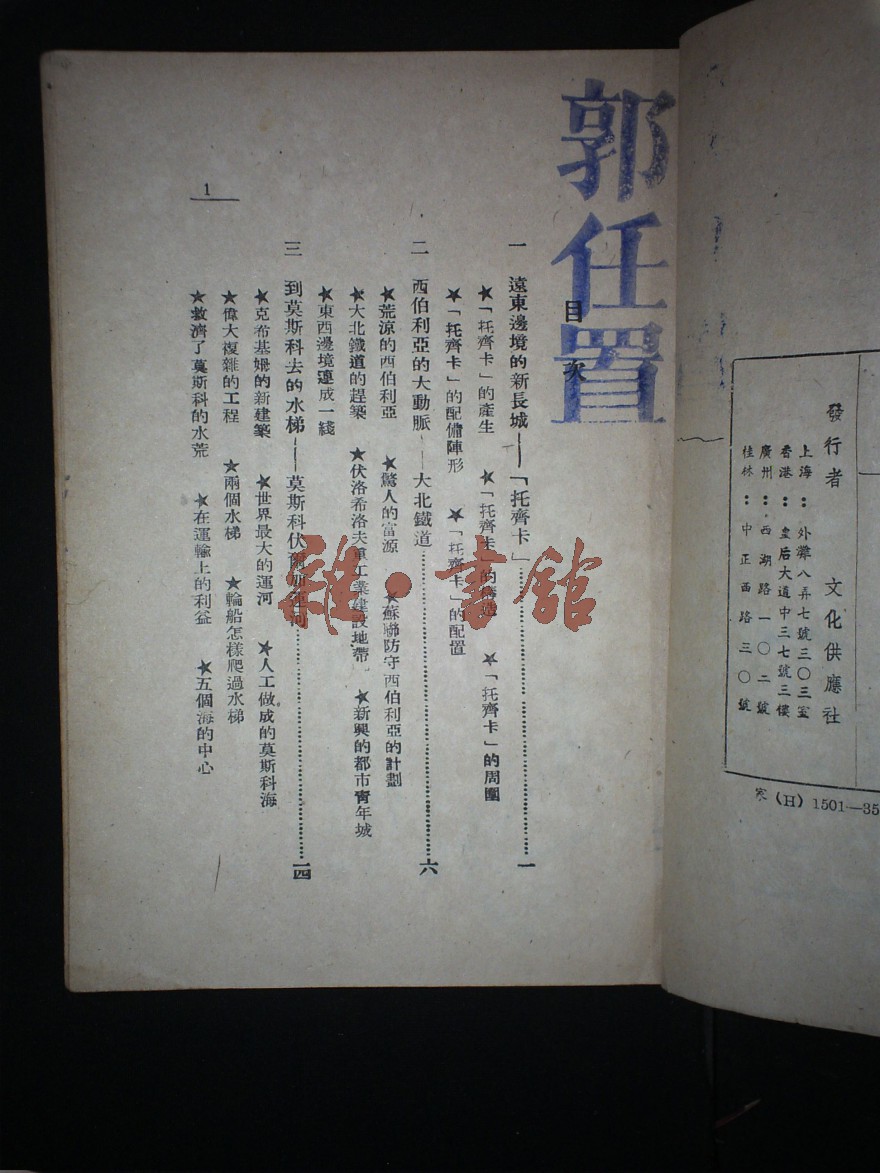 發行者 文化供應社
上海：外灘八弄七號三〇三室
香港：皇后大道中三七號三樓
廣州：西湖路一〇二號
桂林：中正西路三〇號
(H) 1501—35
郭任置
目次
一 遠東邊境的新長城——「托齊卡」……一
★「托齊卡」的產生 ★「托齊卡」的構造 ★「托齊卡」的周圍
★「托齊卡」的配備陣形 ★「托齊卡」的配置
二 西伯利亞的大動脈——大北鐵道……六
★荒涼的西伯利亞 ★驚人的富源 ★蘇聯防守西伯利亞的計劃
★大北鐵道的趕築 ★伏洛希洛夫重工業建設地帶 ★新興的都市青年城
★東西邊境連成一綫
三 到莫斯科去的水梯——莫斯科伏爾加運河……一四
★克布基姆的新建築 ★世界最大的運河 ★人工做成的莫斯科海
★偉大複雜的工程 ★兩個水梯 ★輪船怎樣爬過水梯
★救濟了莫斯科的水荒 ★在運輸上的利益 ★五個海的中心
1
雜·書館